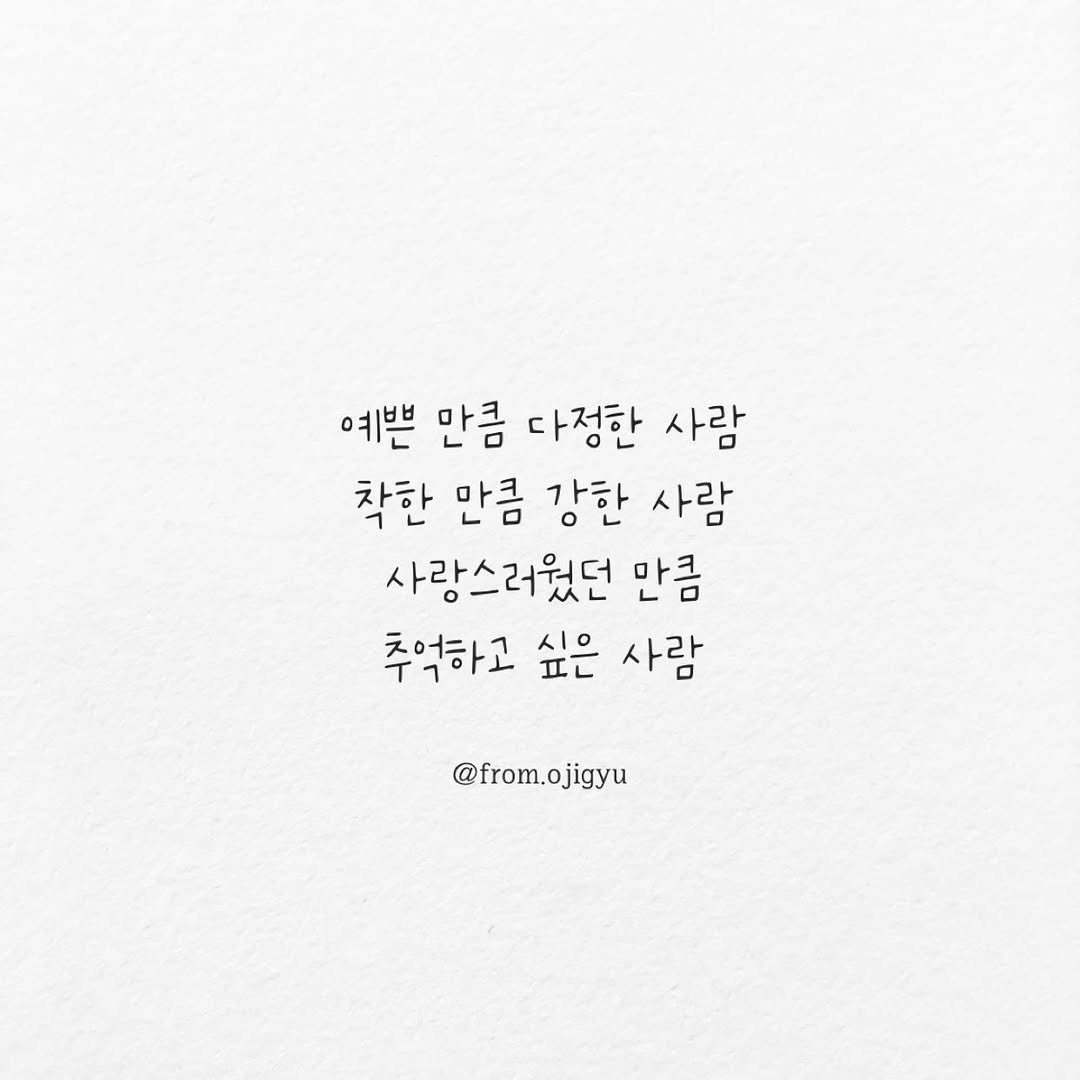 예쁜 만큼 다정한 사람
착한 만큼 강한 사람
사랑스러웠던 만큼
추억하고 싶은 사람
@from.ojigyu